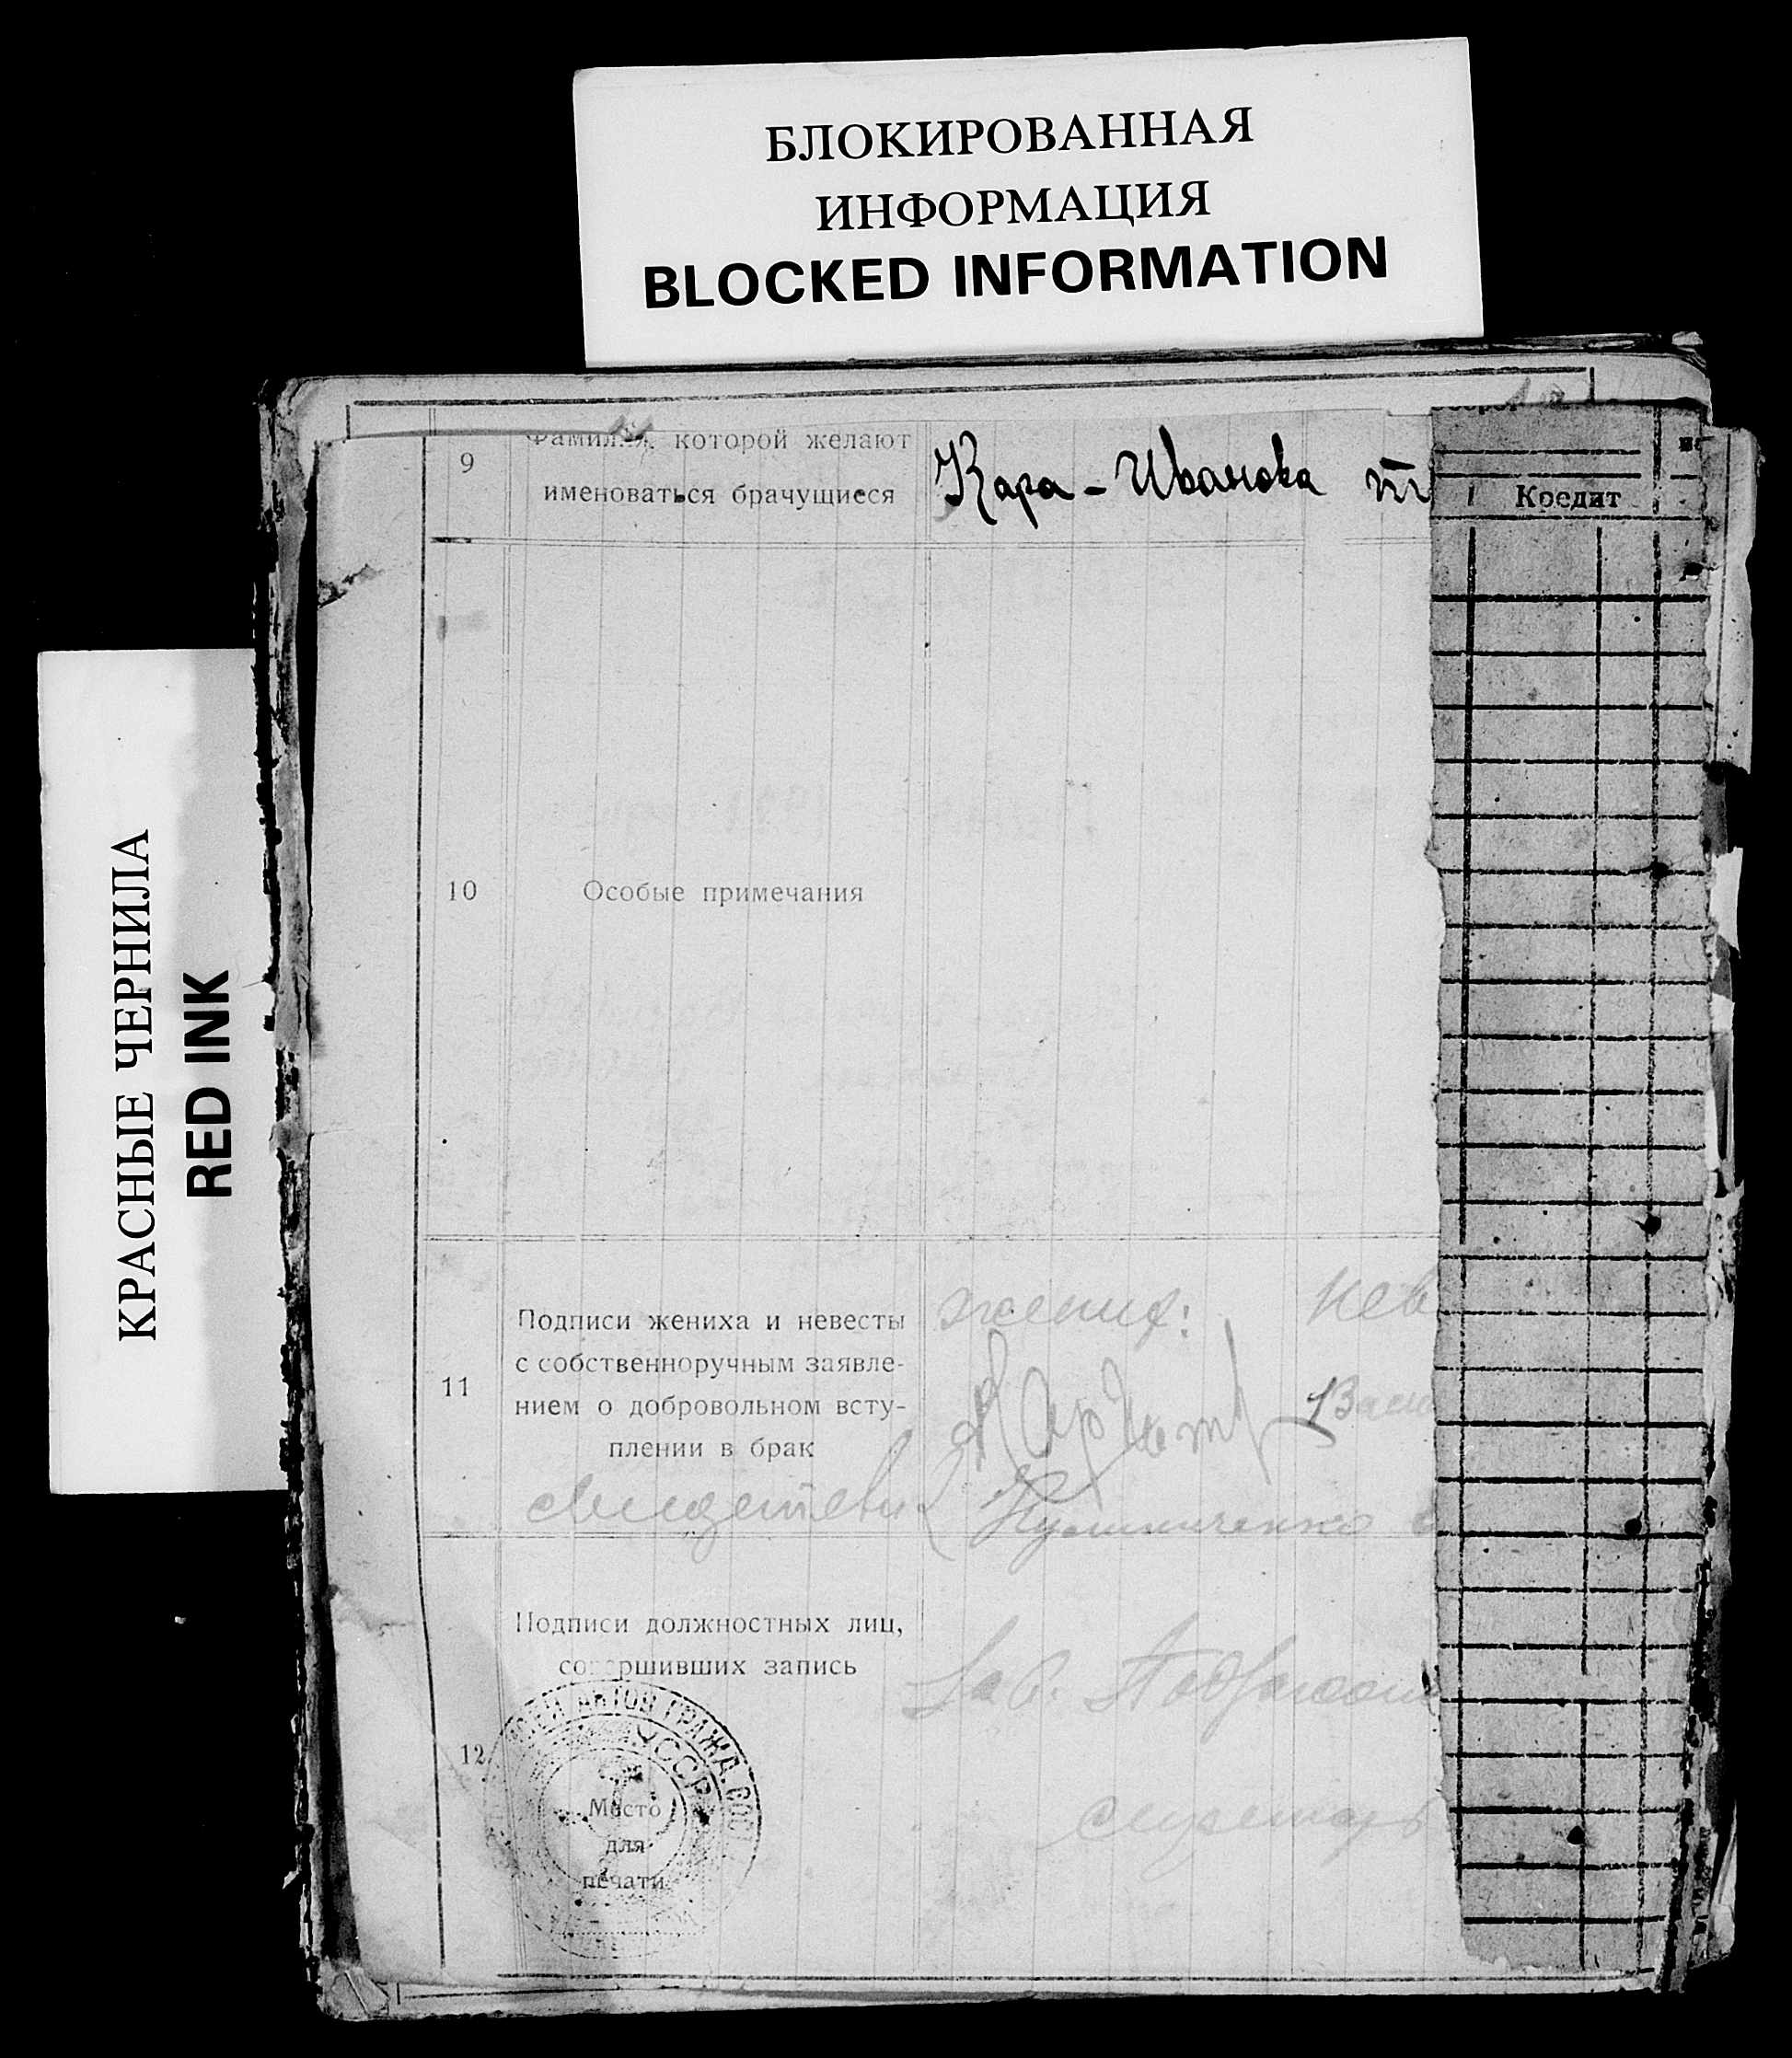 БЛОКИРОВАННАЯ
ИНФОРМАЦИЯ
BLOCKED INFORMATION
КРАСНЫЕ ЧЕРНИЛА
RED INK
9
Фамилия, которой желают
именоваться брачущиеся
Кара-Иванова
Кредит
10
Особые примечания
11
Подписи жениха и невесты
с собственноручным заявле-
нием о добровольном всту-
плении в брак
жених:
нев
свидетели
12
Подписи должностных лиц,
совершивших запись
Зав.
секретарь
АКТОВ ГРАЖД. СОСТ
УССР
Место
для
печати